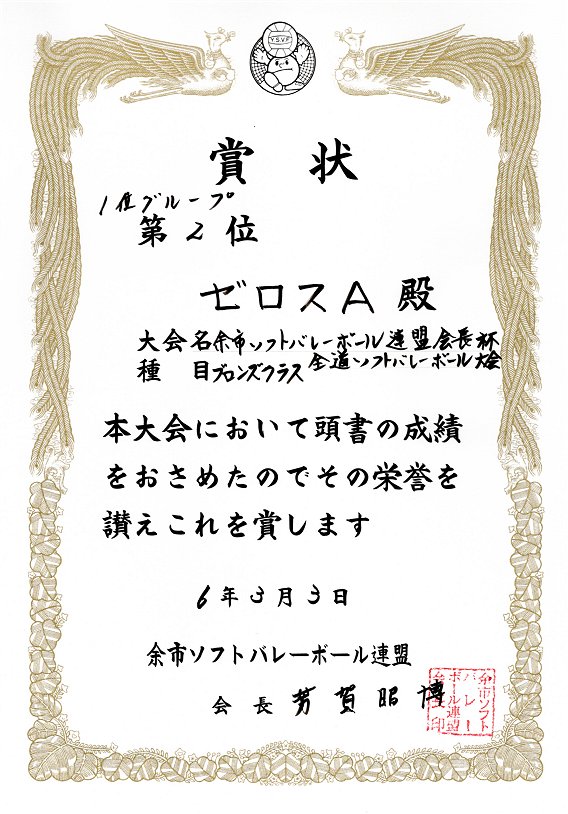 Y.S.V.F
賞状
1位グループ
第2位
ゼロスA 殿
大会名 余市ソフトバレーボール連盟会長杯
全道ソフトバレーボール大会
種目 ブロンズクラス
本大会において頭書の成績
をおさめたのでその栄誉を
讃えこれを賞します
6年3月3日
余市ソフトバレーボール連盟
会長 芳賀昭博
余市ソフト
バレー
ボール連盟